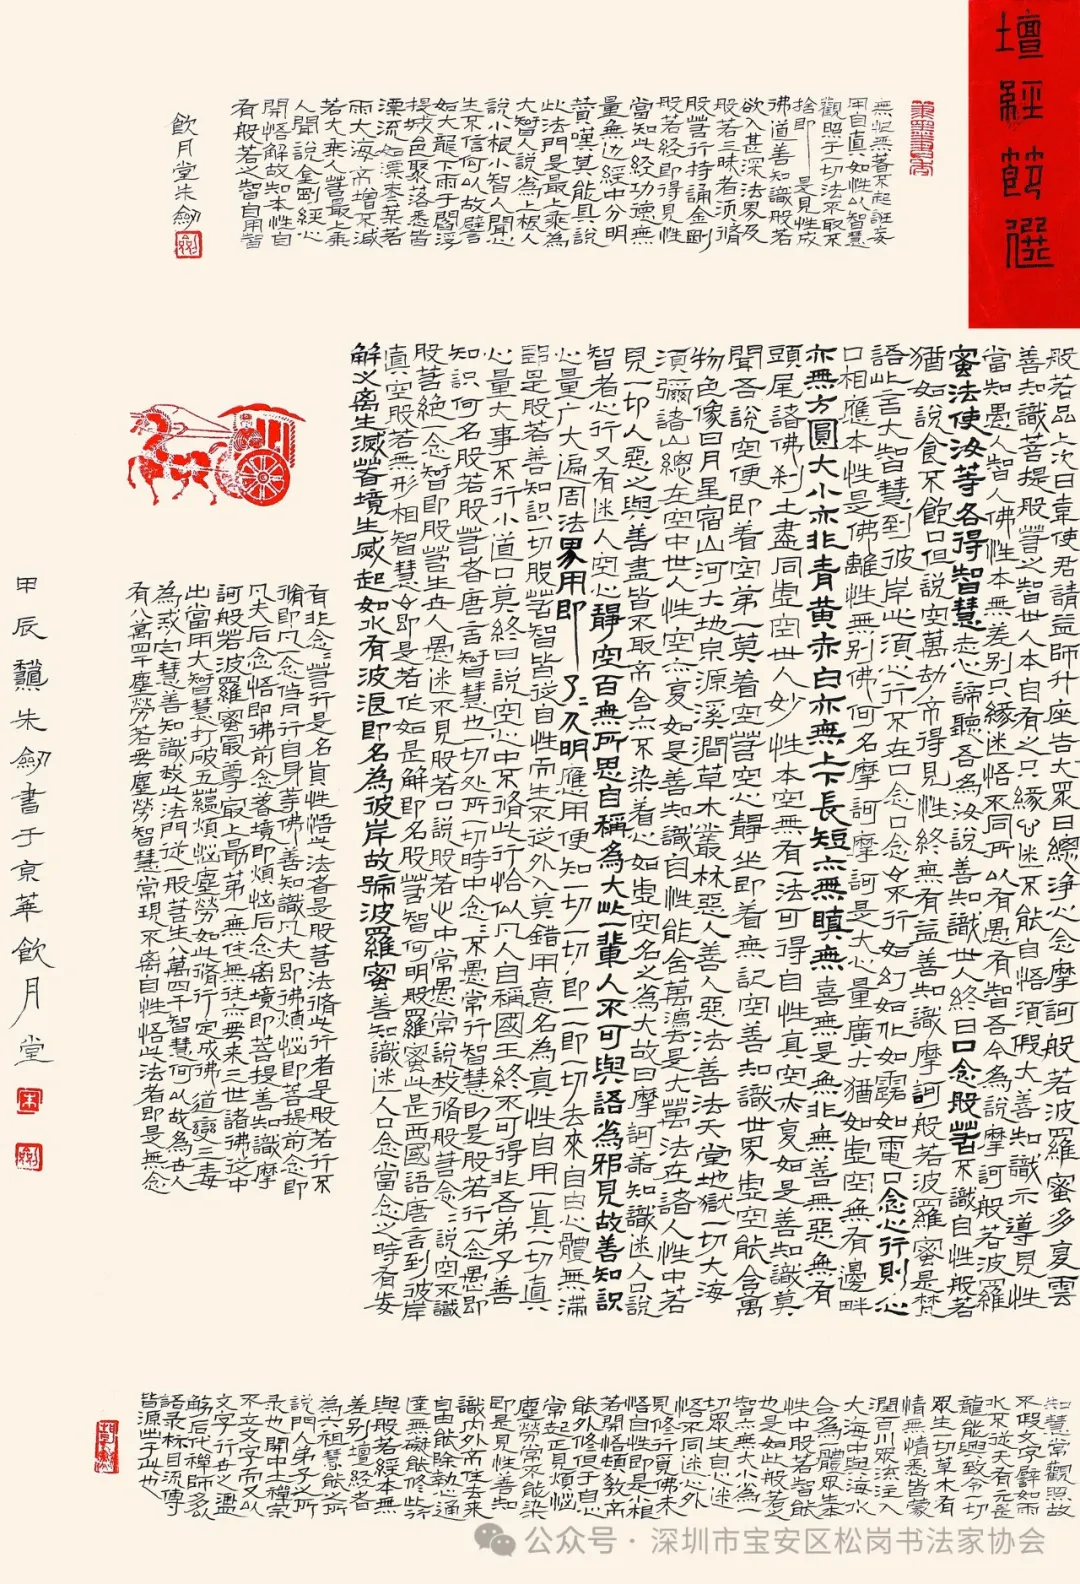 壇經節選
無憶無著不起誑妄
用自真如性以智慧
觀照于一切法不取不
捨即是見性成
佛道善知識般若
欲入甚深法界及
般若三昧者须脩
般若行持誦金剛
般若經即得見性
當知此經功德無
量無边經中分明
贊嘆莫能具說
此法門是最上乘為
大智人說為上根人
說小根小智人聞心
生不信何以故譬
如大龍下雨于閻浮
提城邑聚落悉皆
漂流如漂枣葉若
雨大海不增不減
若大乘人若最上乘
人聞說金剛經心
開悟解故知本性自
有般若之智自用智
飲月堂朱劍
般若品上次日韋使君請益師升座告大眾曰總淨心念摩訶般若波羅蜜多复雲
善知識菩提般若之智世人本自有之只緣心迷不能自悟須假大善知識示導見性
當知愚人智人佛性本無差别只緣迷悟不同所以有愚有智吾今為說摩訶般若波羅
蜜法使汝等各得智慧志心諦聽吾為汝說善知識世人終日口念般若不識自性般若
猶如說食不飽口但說空萬劫不得見性終無有益善知識摩訶般若波羅蜜是梵
語此言大智慧到彼岸此須心行不在口念口念心不行如幻如化如露如電口念心行則心
口相應本性是佛離性無别佛何名摩訶摩訶是大心量廣大猶如虛空無有邊畔
亦無方圓大小亦非青黃赤白亦無上下長短亦無瞋無喜無是無非無善無惡無有
頭尾諸佛刹土盡同虛空世人妙性本空無有一法可得自性真空亦复如是善知識莫
聞吾說空便即着空第一莫着空若空心靜坐即着無記空善知識世界虛空能含萬
物色像日月星宿山河大地泉源溪澗草木叢林惡人善人惡法善法天堂地獄一切大海
須彌諸山總在空中世人性空亦复如是善知識自性能含萬法是大萬法在諸人性中若
見一切人惡之與善盡皆不取不舍亦不染着心如虛空名之為大故曰摩訶善知識迷人口說
智者心行又有迷人空心靜空百無所思自稱為大此一輩人不可與語為邪見故善知識
心量广大遍周法界用即了〻分明應用便知一切一切即一一即一切去來自由心體無滯
即是般若善知識一切般若智皆從自性而生不從外入莫錯用意名為真性自用一真一切真
心量大事不行小道口莫終日說空心中不脩此行恰似凡人自稱國王終不可得非吾弟子善
知識何名般若般若者唐言智慧也一切处所一切時中念〻不愚常行智慧即是般若行一念愚即
般若絕一念智即般若生世人愚迷不見般若口說般若心中常愚常說我脩般若念〻說空不識
真空般若無形相智慧心即是若作如是解即名般若智何明般羅蜜此是西國語唐言到彼岸
解义离生滅著境生滅起如水有波浪即名為彼岸故號波羅蜜善知識迷人口念當念之時有妄
有非念〻若行是名真性悟此法者是般若法脩此行者是般若行不
脩即凡一念脩行自身等佛善知識凡夫即佛煩惱即菩提前念即
凡夫后念悟即佛前念著境即煩惱后念离境即菩提善知識摩
訶般若波羅蜜最尊最上最第一無住無往亦無来三世諸佛從中
出當用大智慧打破五蘊煩惱塵勞如此脩行定成佛道變三毒
為戒定慧善知識我此法門從一般若生八萬四千智慧何以故為世人
有八萬四千塵勞若無塵勞智慧常現不离自性悟此法者即是無念
甲辰龝朱劍書于京華飲月堂
知慧常觀照故
不假文字譬如雨
水不從天有元是
龍能興致令一切
眾生一切草木有
情無情悉皆蒙
潤百川眾流注入
大海中與海水
合為一體眾生本
性中般若智能
也是如此般若之
智亦無大小為一
切眾生自心迷
悟不同迷心外
見修行覓佛未
悟自性即是小根
若開悟頓教不
能外修但于自心
常起正見煩惱
塵勞常不能染
即是見性善知
識內外不住去來
自由能除執心通
達無礙能修此行
與般若經本無
差别壇經者
為六祖慧能之所
說門人弟子之所
录也開中土禪宗
不立文字而又以
文字行世之濫
觴后代禪師多以
語录标目流傳
皆源出于此也
公众号 · 深圳市宝安区松岗书法家协会